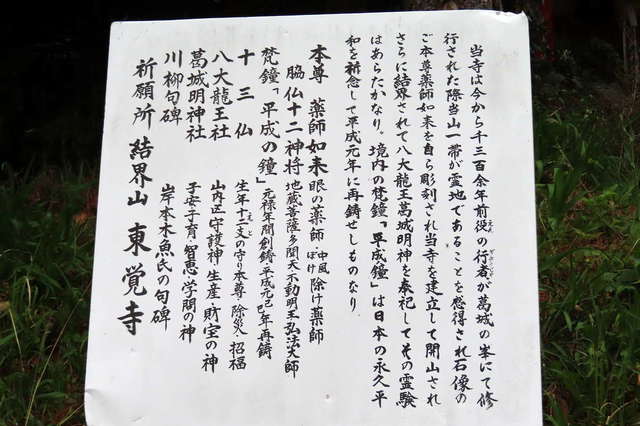 当寺は今から千三百余年前役の行者が葛城の峯にて修
行された際当山一帯が霊地であることを感得され石像の
ご本尊薬師如来を自ら彫刻され当寺を建立して開山され
さらに結界されて八大龍王葛城明神を奉祀してその霊験
はあらたかなり。境内の梵鐘「平成鐘」は日本の永久平
和を祈念して平成元年に再鋳せしものなり
本尊 薬師如来 眼の薬師・中風・ぼけ除け薬師
脇仏十二神将 地蔵菩薩多聞天不動明王弘法大師
梵鐘「平成の鐘」元禄年間創鋳平成元巳年再鋳
十三仏 生年十二支の守り本尊・除災・招福
八大龍王社 山内守護神 生産・財宝の神
葛城明神社 子安子育・智恵・学問の神
川柳句碑 岸本水魚氏の句碑
祈願所 結界山 東覚寺